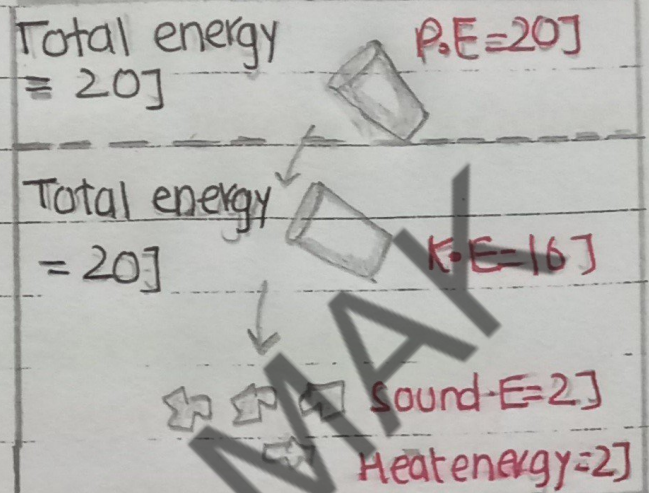 Total energy
= 20J
P.E=20J
Total energy
= 20J
K.E=16J
Sound-E=2J
Heatenergy=2J
MAK